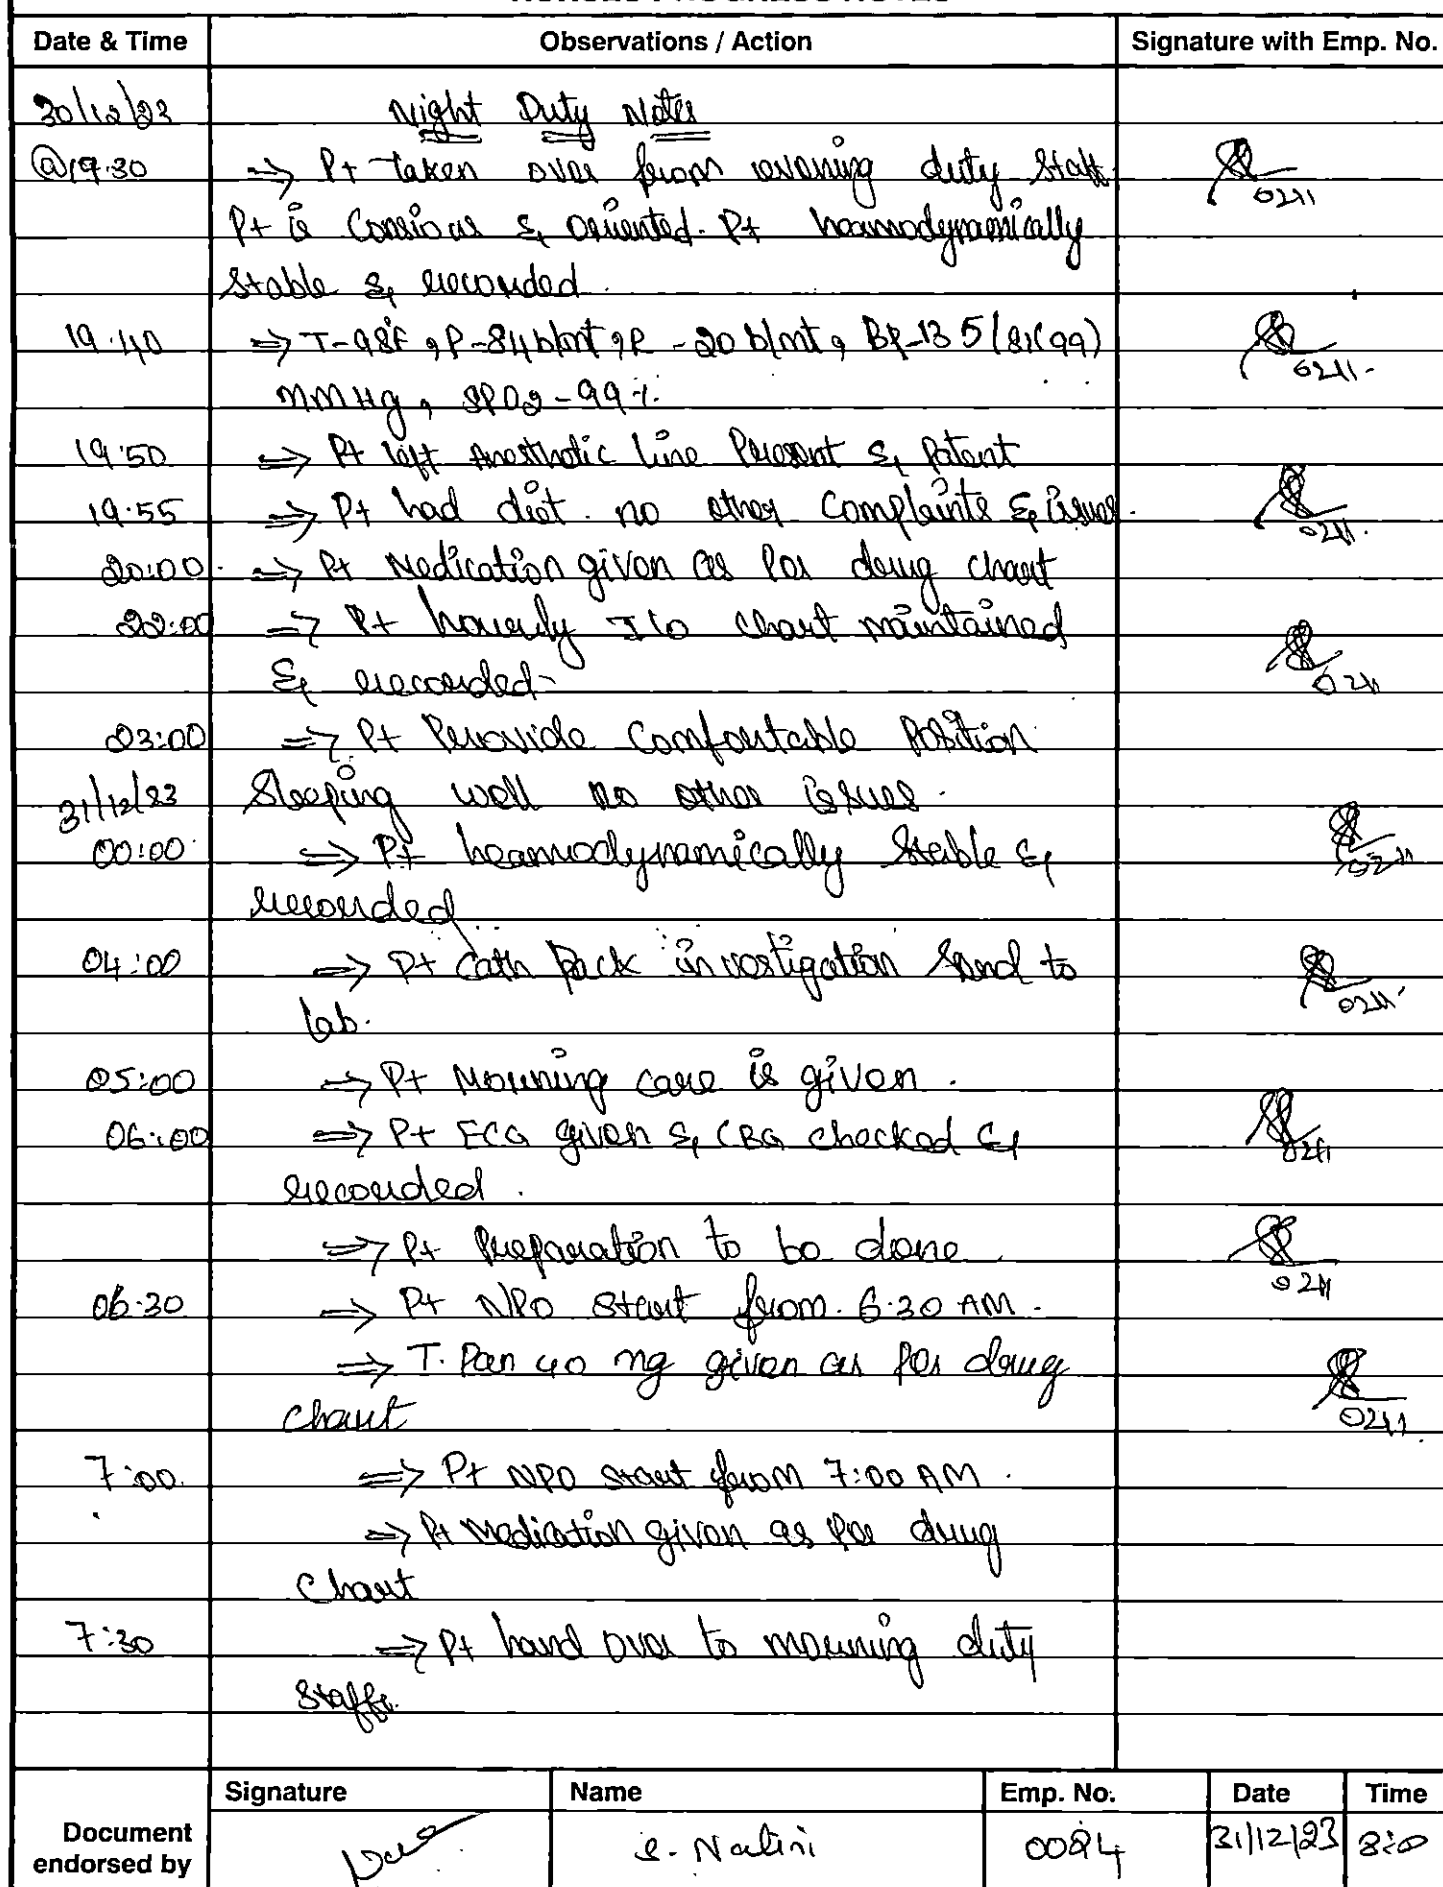 Date & Time Observations / Action Signature with Emp. No.
30/12/23 Night Duty Notes
@19.30 => Pt taken over from evening duty staff. 0211
Pt is Consious & oriented. Pt heamodynamically
Stable & recorded.
19.40 => T-98°F, P-84b/mt, R-20 b/mt, BP-135/81(99) 0211.
mmHg, SPO2-99%.
19.50 => Pt left line Present & Patent
19.55 => Pt had diet. no other Complaints & issues. 0211.
20:00. => Pt Medication given as per drug chart
22:00 => Pt hourly I/O chart maintained
& recorded- 0211
03:00 => Pt Provide Comfortable Position.
31/12/23 Sleeping well no other issues.
00:00 => Pt heamodynamically Stable & 0211
recorded
04:00 => Pt Cath Pack investigation Send to 0211
lab.
05:00 => Pt Morning care is given.
06:00 => Pt ECG given & CBG checked & 0211
recorded.
=> Pt Preparation to be done. 0211
06.30 => Pt NPO Start from. 6.30 AM.
=> T. Pan 40 mg given as per drug
chart 0211
7:00. => Pt NPO start from 7:00 AM.
=> Pt medication given as per drug
Chart
7:30 => Pt hand over to morning duty
Staffs.
Signature Name Emp. No. Date Time
Document
endorsed by S. Nalini 0024 31/12/23 8:0